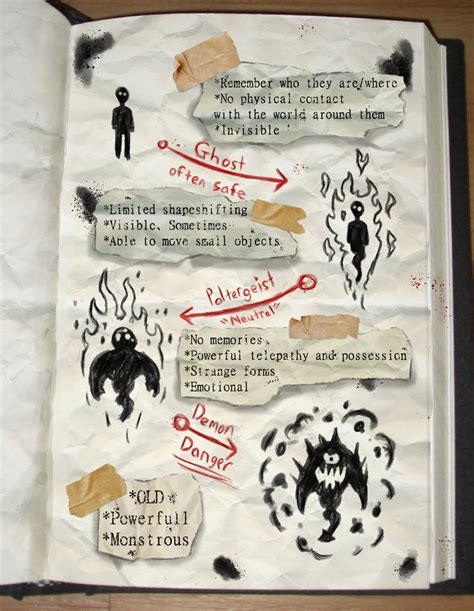 *Remember who they are/where
*No physical contact
with the world around them
*Invisible
Ghost
often safe
*Limited shapeshifting
*Visible, Sometimes
*Able to move small objects
Poltergeist
"Neutral"
*No memories
*Powerful telepathy and possession
*Strange forms
*Emotional
Demon
Danger
*OLD
*Powerfull
*Monstrous